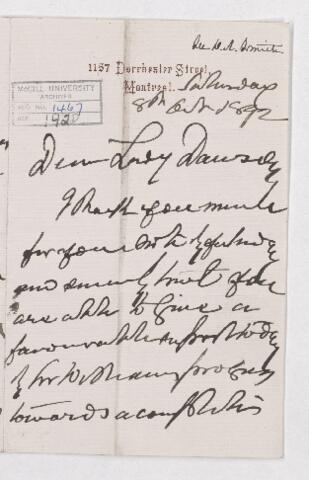 See D.A. Smith
1157 Dorchester Street,
Montreal.
Saturday
8th Oct 1892
McGILL UNIVERSITY
ARCHIVES
ACC. NO. 1467
REF. 1927
Dear Lady Dawson
I thank you much
for your note of yesterday
and sincerely trust you
are able to give a
favourable report to day
of Sir William's progress
towards a complete